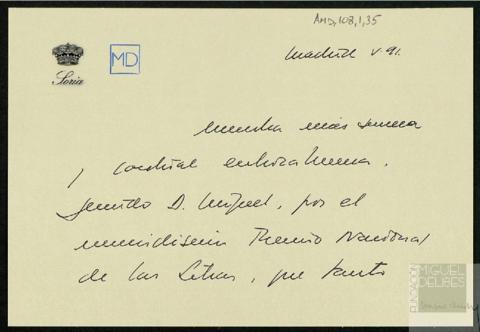 AMD,108,1,35
Soria
MD
Madrid V-91
Nuestra más sincera
y cordial enhorabuena,
querido D. Miguel, por el
merecidísimo Premio Nacional
de las Letras, que tanto
FUNDACIÓN
MIGUEL
DELIBES